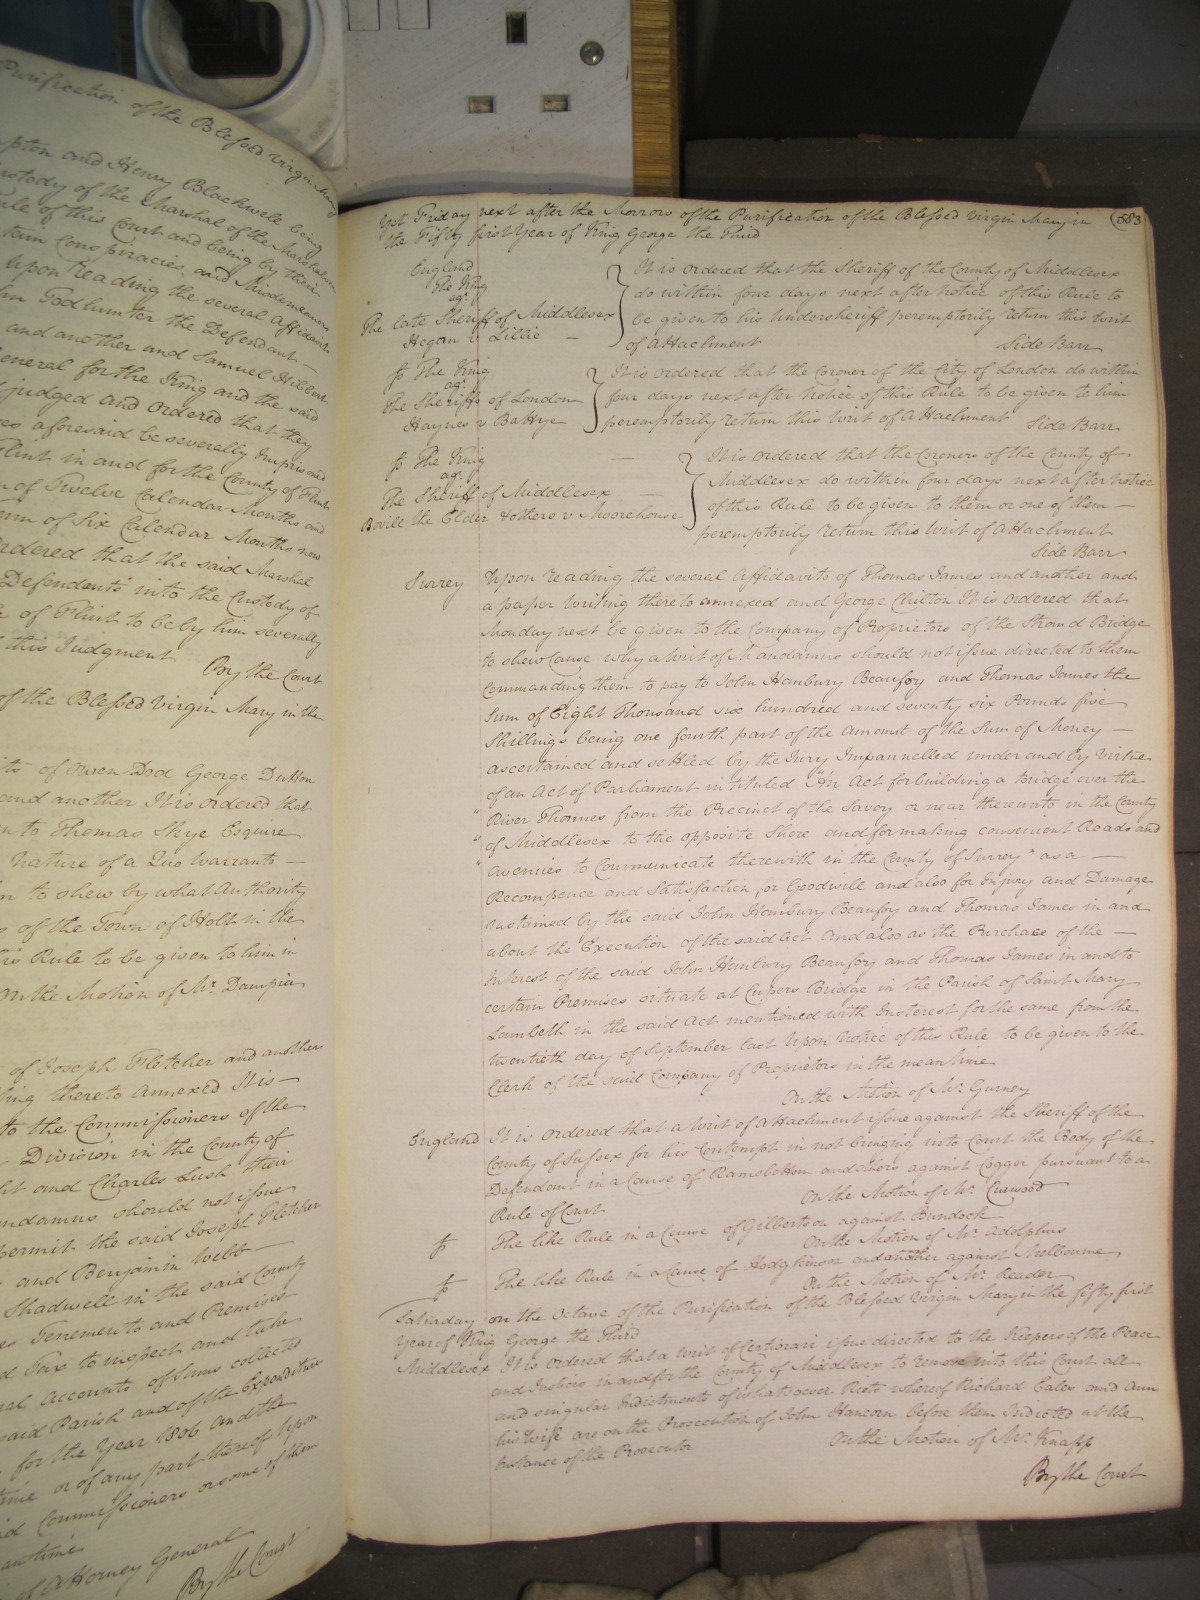 Purification of the Blessed Virgin Mary
and Henry Blackwell being
custody of the Marshal of the Marshalsea
rule of this Court and being by their
Conspiracies and Misdemeanors
upon reading the several Affidavits
Todhunter the Defendant
and another and Samuel Hibbert
General for the King and the said
adjudged and ordered that they
aforesaid be severally Imprisoned
Flint in and for the County of Flint
of Twelve Calendar Months and
of Six Calendar Months now
ordered that the said Marshal
Defendants into the Custody of
of Flint to be by him severally
this Judgment
By the Court
of the Blessed Virgin Mary in the
of Owen Dod George Dutton
and another It is ordered that
to Thomas Skye Esquire
nature of a Quo Warranto
to shew by what Authority
of the Town of Holt in the
Rule to be given to him in
On the Motion of Mr. Dampier
of Joseph Fletcher and another
thereto annexed It is
to the Commissioners of the
Division in the County of
and Charles Lush their
should not issue
permit the said Joseph Fletcher
and Benjamin Webb
Shadwell in the said County
Tenements and Premises
Tax to inspect and take
Accounts of Sums collected
said Parish and of the Expenditure
for the Year 1806 and the
or of any part thereof Upon
Commissioners or some of them
of Attorney General
By the Court
Yet Friday next after the Morrow of the Purification of the Blessed Virgin Mary in 583
the Fifty first Year of King George the Third
England
The King
agt.
The late Sheriff of Middlesex
v Lillie
It is ordered that the Sheriff of the County of Middlesex
do within four days next after notice of this Rule to
be given to his Undersheriff peremptorily return this Writ
of Attachment Side Barr
The King
agt.
The Sheriffs of London
Haynes v Battye
It is ordered that the Coroner of the City of London do within
four days next after Notice of this Rule to be given to him
peremptorily return this Writ of Attachment Side Barr
The King
agt.
The Sheriff of Middlesex
Bovill the Elder & others v Moorehouse
It is ordered that the Coroners of the County of
Middlesex do within four days next after notice
of this Rule to be given to them or one of them
peremptorily return this Writ of Attachment
Side Barr
Surrey Upon reading the several Affidavits of Thomas James and another and
a paper Writing thereto annexed and George Clinton It is ordered that
Monday next be given to the Company of Proprietors of the Strand Bridge
to shew Cause why a Writ of Mandamus should not issue directed to them
Commanding them to pay to John Hanbury Beaufoy and Thomas James the
Sum of Eight Thousand six hundred and seventy six Pounds five
Shillings being one fourth part of the amount of the Sum of Money
ascertained and settled by the Jury Impannelled under and by Virtue
of an Act of Parliament intituled "An Act for building a Bridge over the
" River Thames from the Precinct of the Savoy or near thereunto in the County
" of Middlesex to the opposite Shore and for making convenient Roads and
" Avenues to Communicate therewith in the County of Surrey" as a
Recompence and Satisfaction for Goodwill and also for Injury and Damage
sustained by the said John Hanbury Beaufoy and Thomas James in and
about the Execution of the said Act And also as the Purchase of the
Interest of the said John Hanbury Beaufoy and Thomas James in and to
certain Premises situate at Cupers Bridge in the Parish of Saint Mary
Lambeth in the said Act mentioned with Interest for the same from the
twentieth day of September last Upon Notice of this Rule to be given to the
Clerk of the said Company of Proprietors in the mean time
On the Motion of Mr. Gurney
England It is ordered that a Writ of Attachment issue against the Sheriff of the
County of Sussex for his Contempt in not bringing into Court the Body of the
Defendant in a Cause of Ramsbottom and others against Cogger pursuant to a
Rule of Court On the Motion of Mr. Curwood
The like Rule in a Cause of Gilbertson against Bundock
On the Motion of Mr. Adolphus
The like Rule in a Cause of Hodgkinson and another against Melbourne
On the Motion of Mr. Reader
Saturday on the Octave of the Purification of the Blessed Virgin Mary in the fifty first
Year of King George the Third
Middlesex It is ordered that a Writ of Certiorari issue directed to the Keepers of the Peace
and Justices in and for the County of Middlesex to remove into this Court all
and singular Indictments of whatsoever Riots whereof Richard Cales and Ann
his Wife are on the Prosecution of John Hancorn before them Indicted at the
Instance of the Prosecutor On the Motion of Mr. Knapp
By the Court